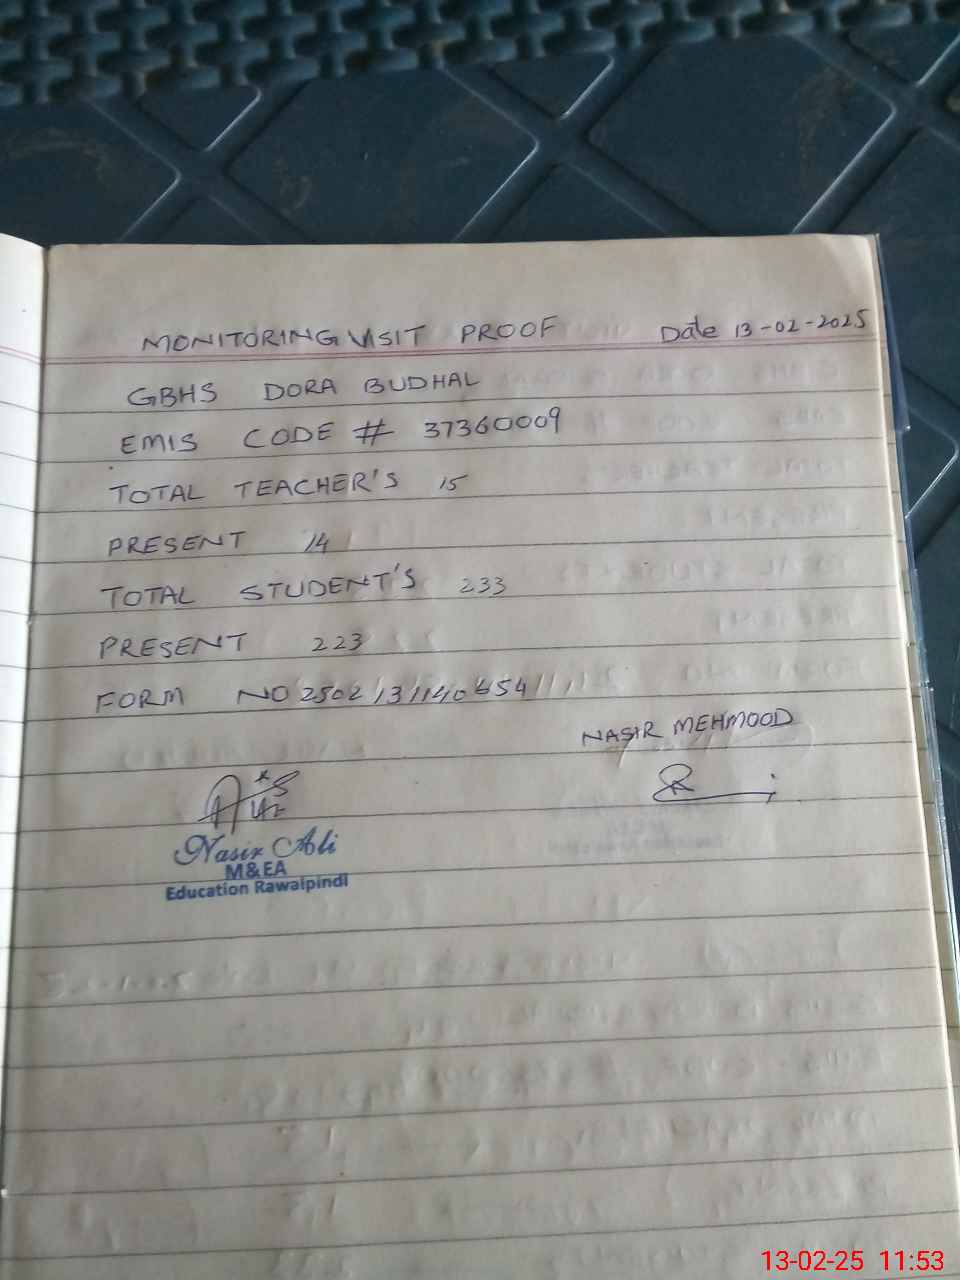 MONITORING VISIT PROOF Date 13-02-2025
GBHS DORA BUDHAL
EMIS CODE # 37360009
TOTAL TEACHER'S 15
PRESENT 14
TOTAL STUDENT'S 233
PRESENT 223
FORM NO 2502131140654
NASIR MEHMOOD
Nasir Ali
M&EA
Education Rawalpindi
13-02-25 11:53